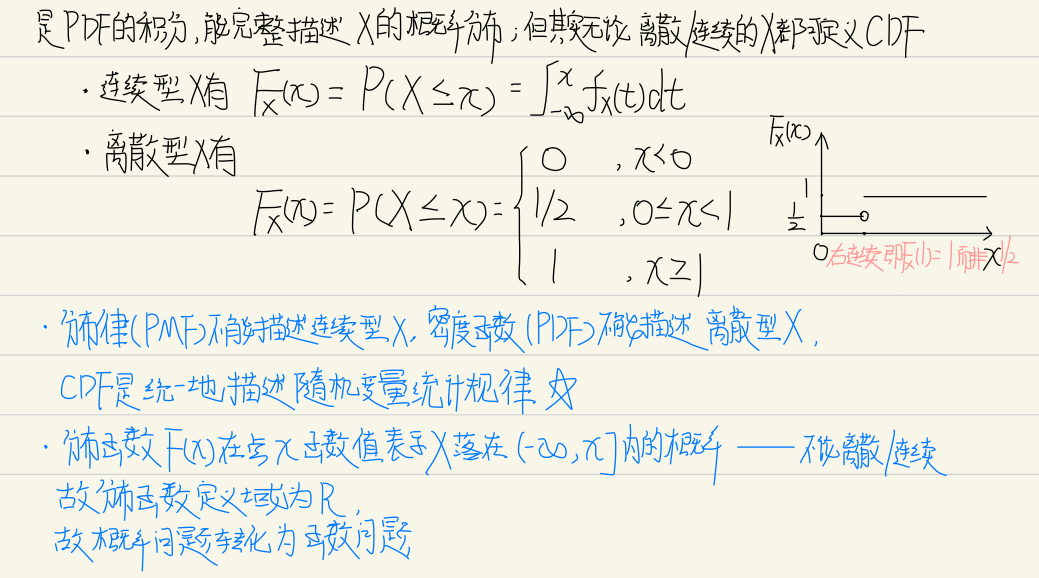 是PDF的积分,能完整描述X的概率分布;但其实无论离散/连续的X都可定义CDF
·连续型X有 F_X(x) = P(X≤x) = ∫_{-∞}^{x} f_X(t)dt
·离散型X有
F_X(x)
0 ,x<0
F_X(x) = P(X≤x) = { 1/2 ,0≤x<1
1 ,x≥1
1
1/2
0
x
右连续即F_X(1)=1而非1/2
·分布律(PMF)不能描述连续型X,密度函数(PDF)不能描述离散型X,
CDF是统一地描述随机变量统计规律 ☆
·分布函数F(x)在点x函数值表示X落在(-∞,x]内的概率——不论离散/连续
故分布函数定义域为R,
故概率问题转化为函数问题